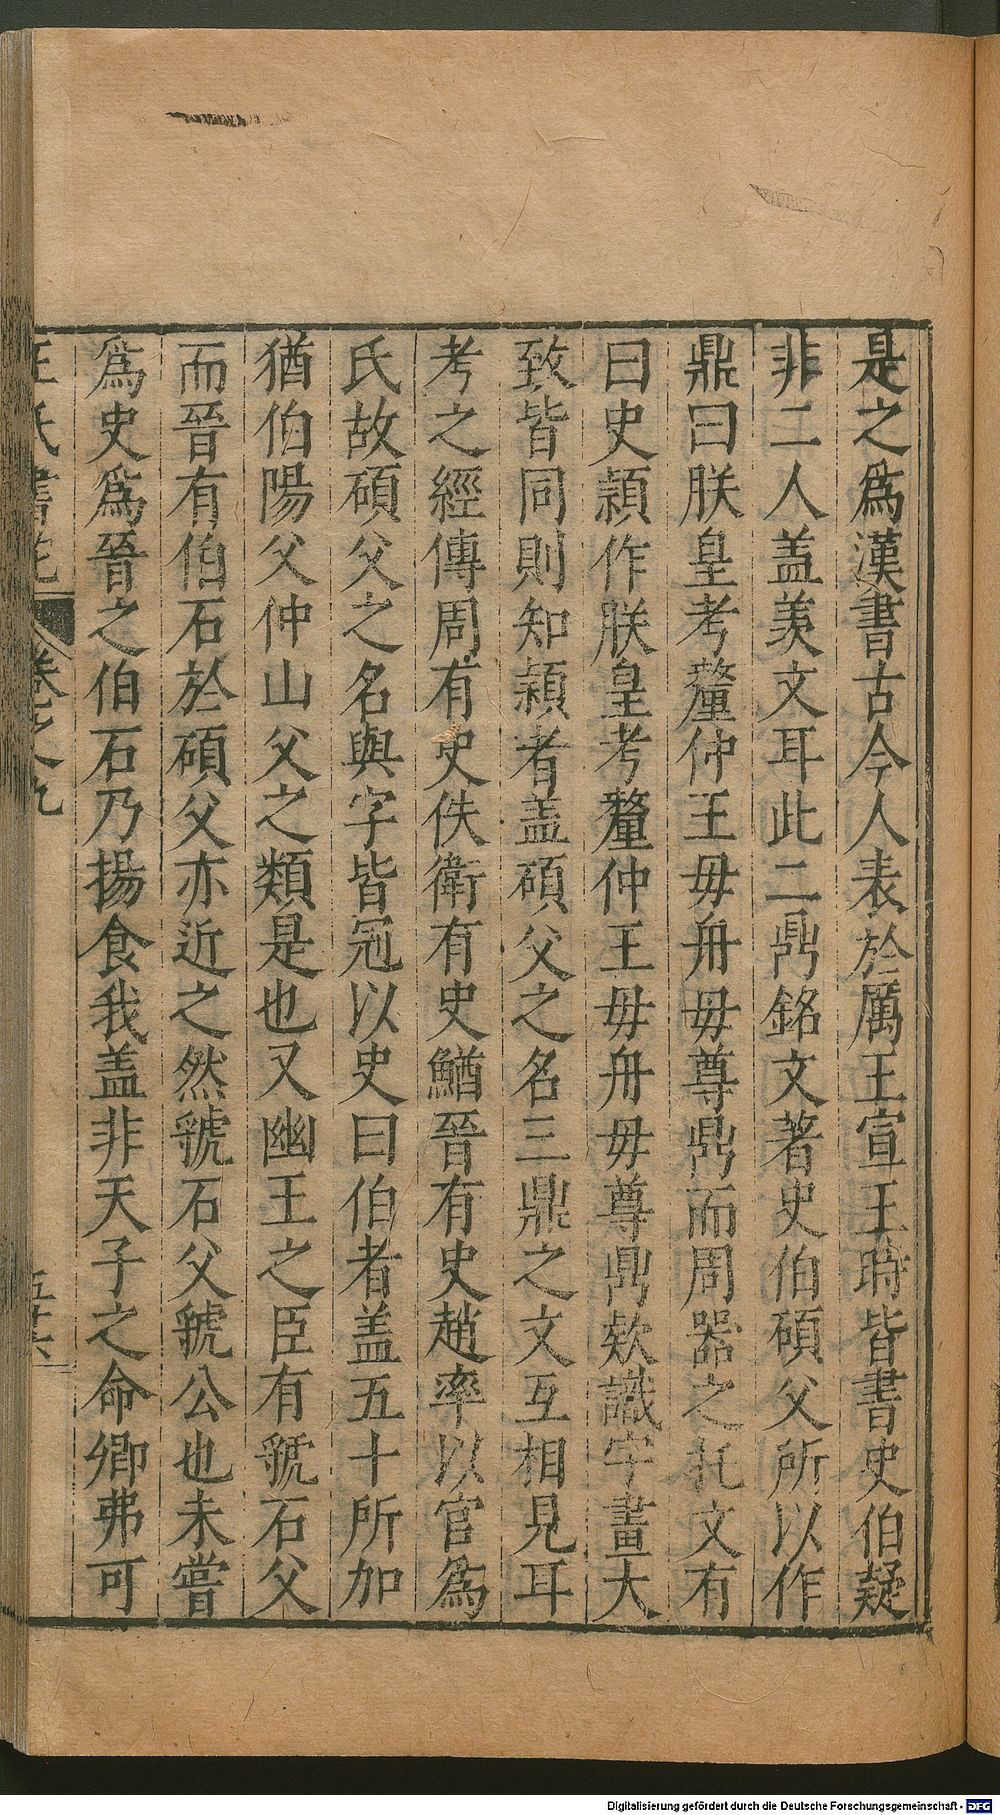 是之爲漢書古今人表於厲王宣王時皆書史伯疑
非二人盖羡文耳此二鼎銘文著史伯碩父所以作
鼎曰朕皇考釐仲王毋舟毋尊鼎而周器之款文有
曰史頴作朕皇考釐仲王毋舟毋尊鼎欵識字畫大
致皆同則知頴者盖碩父之名三鼎之文互相見耳
考之經傳周有史佚衛有史鰌晉有史趙率以官爲
氏故碩父之名與字皆冠以史曰伯者盖五十所加
猶伯陽父仲山父之類是也又幽王之臣有虢石父
而晉有伯石於碩父亦近之然虢石父虢公也未嘗
爲史爲晉之伯石乃揚食我盖非天子之命卿弗可
王氏書苑 卷之九 五十六
Digitalisierung gefördert durch die Deutsche Forschungsgemeinschaft - DFG